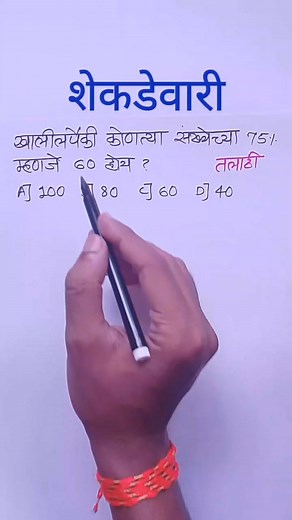 शेकडेवारी
खालीलपैकी कोणत्या संख्येच्या 75%
म्हणजे 60 होय ? तलाठी
A] 100 B] 80 C] 60 D] 40